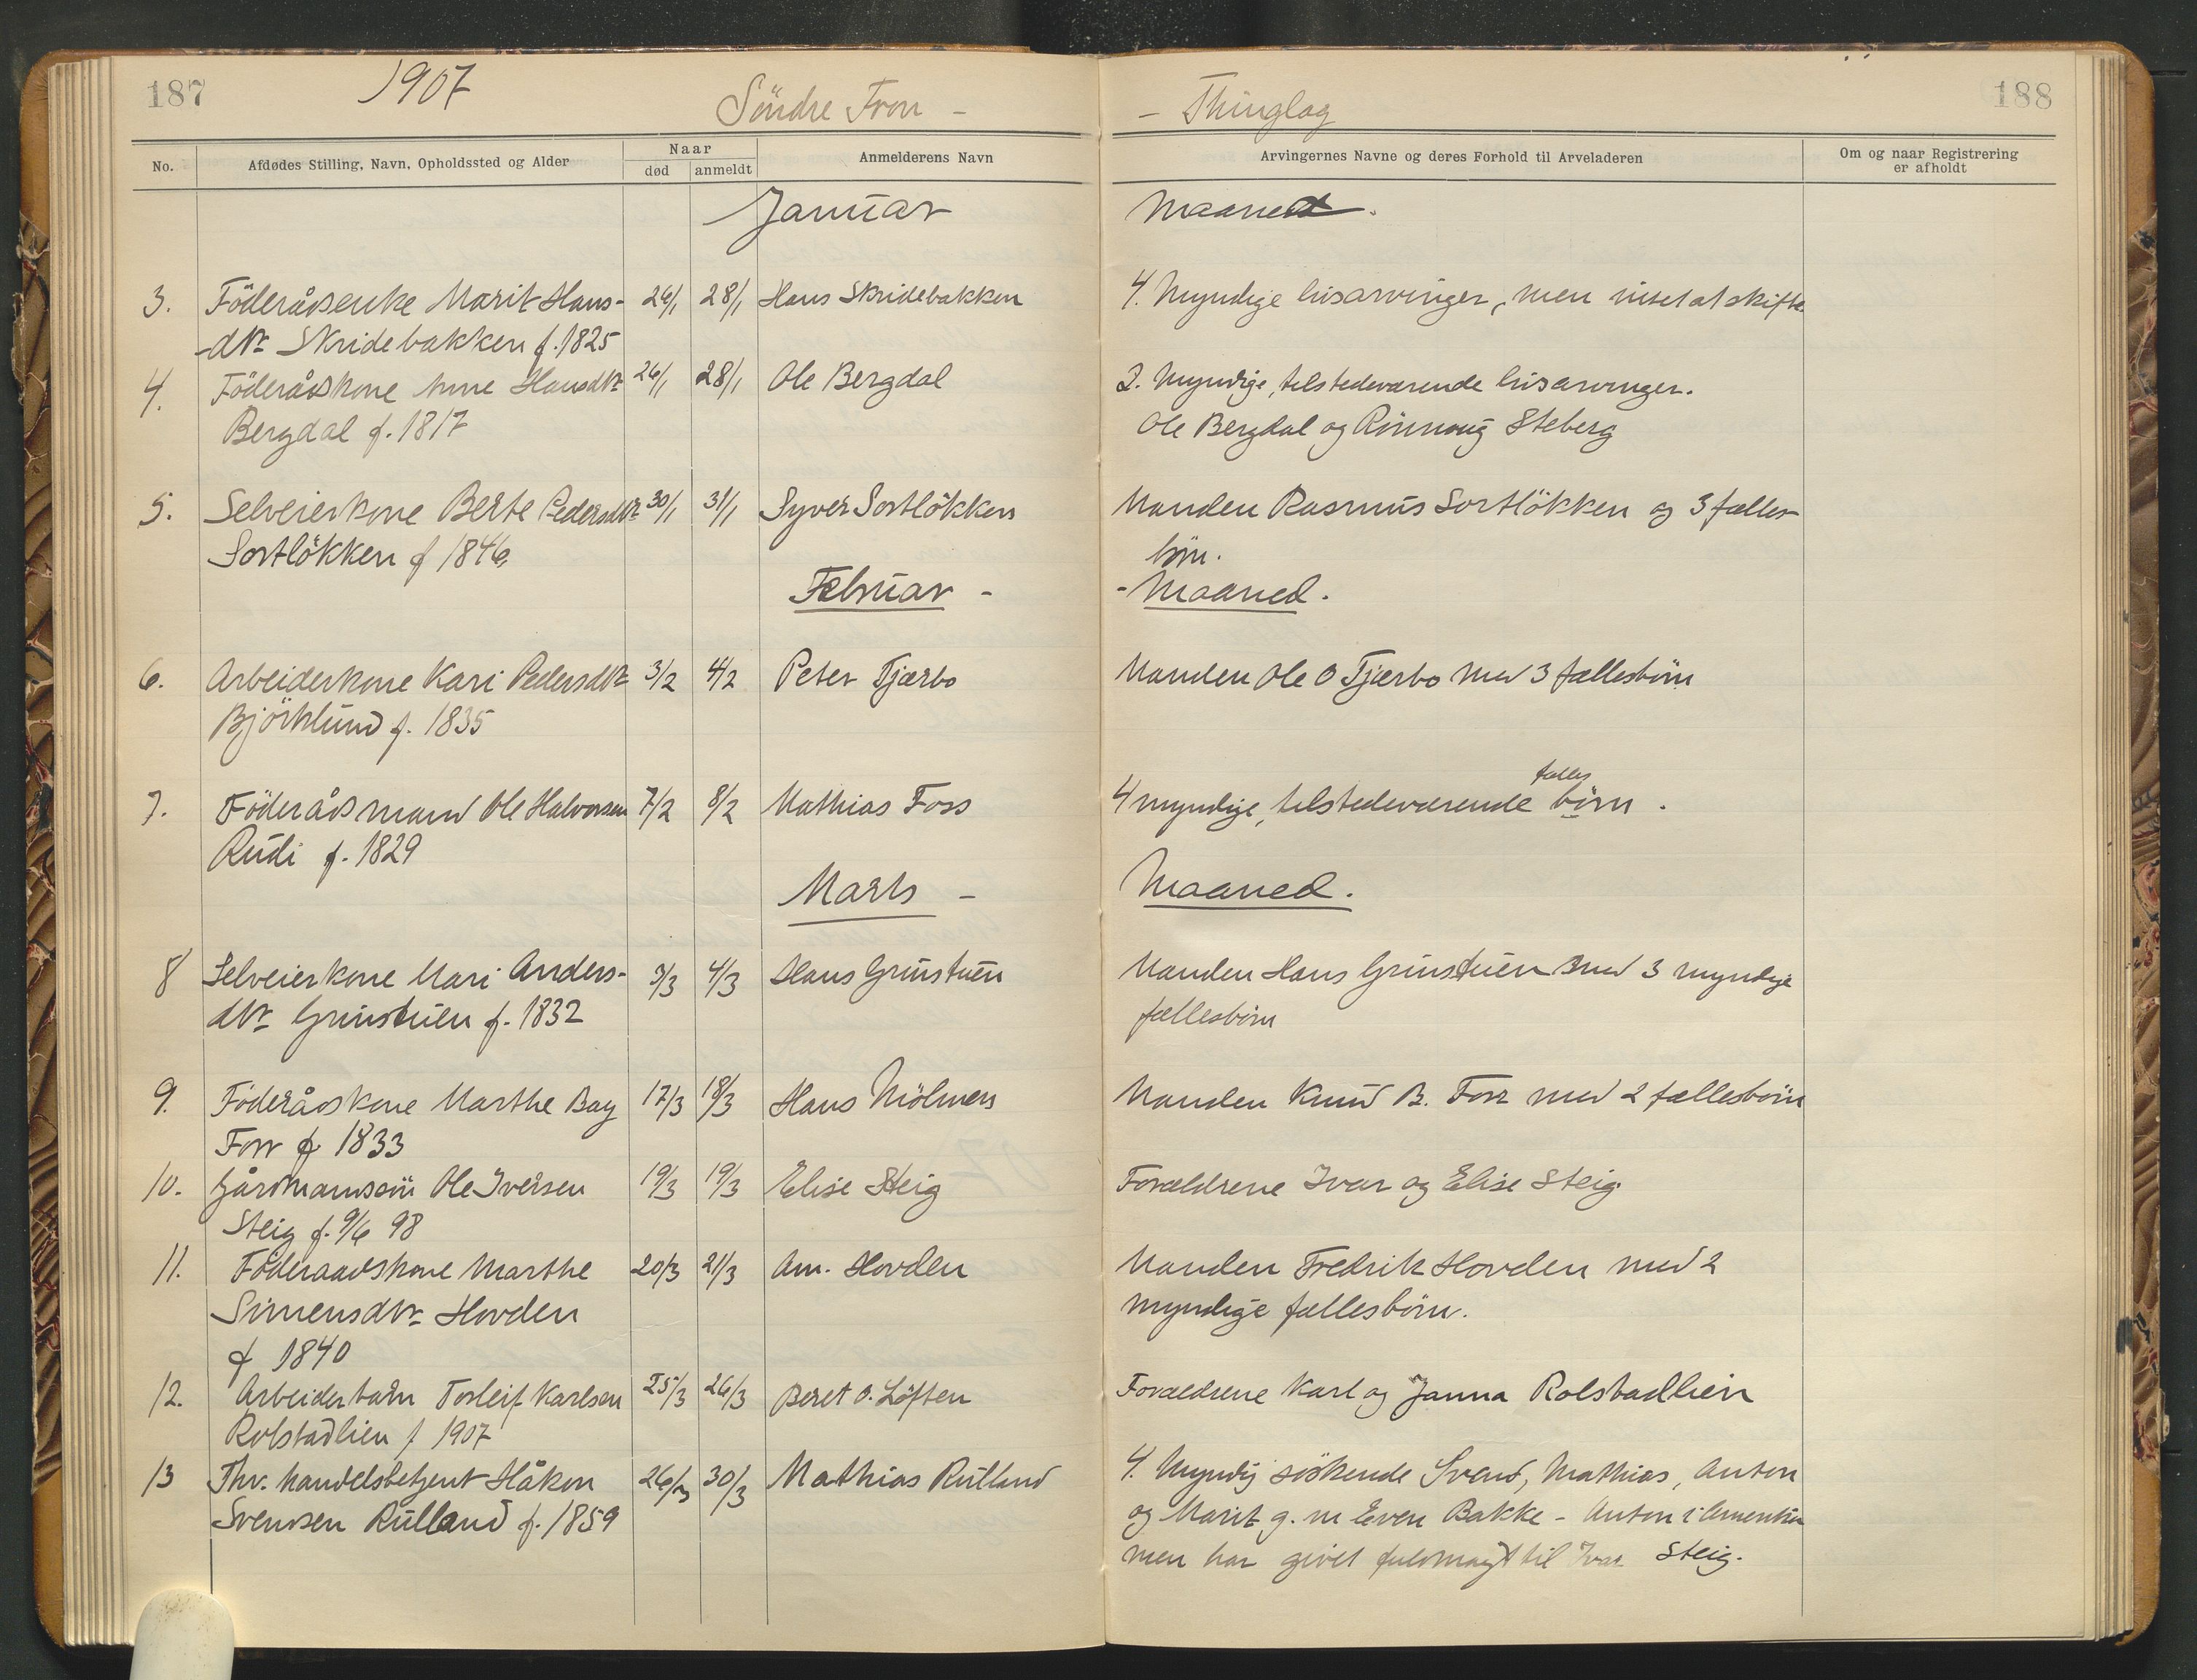 187
1907
Söndre Fron -
- Thinglag
188
No.
Afdødes Stilling, Navn, Opholdssted og Alder
Naar
død
anmeldt
Anmelderens Navn
Arvingernes Navne og deres Forhold til Arveladeren
Om og naar Registrering
er afholdt
Januar
Maaned.
3. Föderådsenke Marit Hans- 26/1 28/1 Hans Skridebakken 4. Myndige livsarvinger, men intet at skifte
-dtr Skridebakken f. 1825
4. Föderådskone Anne Hansdtr 26/1 28/1 Ole Bergdal 2. Myndige, tilstedeværende livsarvinger.
Bergdal f. 1817 Ole Bergdal og Rönnoug Steberg
5. Selveierkone Berte Pedersdtr 30/1 31/1 Syver Sortlökken Manden Rasmus Sortlökken og 3 fælles-
Sortlökken f 1846 börn.
Februar - - Maaned.
6. Arbeiderkone Kari Pedersdtr 3/2 4/2 Peter Tjærbo Manden Ole O Tjærbo med 3 fællesbörn
Björklund f. 1835
7. Föderådsmand Ole Halvorsen 7/2 8/2 Mathias Foss 4 myndige, tilstedeværende fælles börn.
Rudi f. 1829
Marts - Maaned.
8 Selveierkone Mari Anders- 3/3 4/3 Hans Grinstuen Manden Hans Grinstuen med 3 myndige
dtr Grinstuen f. 1832 fællesbörn
9. Föderådskone Marthe Bay 17/3 18/3 Hans Mölmen Manden Knud B. Forr med 2 fællesbörn
Forr f 1833
10. Gårdmandssön Ole Iversen 19/3 19/3 Elise Steig Forældrene Ivar og Elise Steig.
Steig f. 9/6 98
11. Föderaadskone Marthe 20/3 21/3 Am. Hovden Manden Fredrik Hovden med 2
Simensdtr Hovden myndige fællesbörn.
f 1840
12. Arbeiderbarn Torleif Karlsen 25/3 26/3 Beret O. Löften Forældrene Karl og Janna Rolstadlien
Rolstadlien f 1907
13 Fhv. handelsbetjent Håkon 26/3 30/3 Mathias Rulland 4. Myndig söskende Svend, Mathias, Anton
Svendsen Rulland f. 1859 og Marit g. m Even Bakke - Anton i Amerika
men har givet fuldmagt til Ivar Steig.